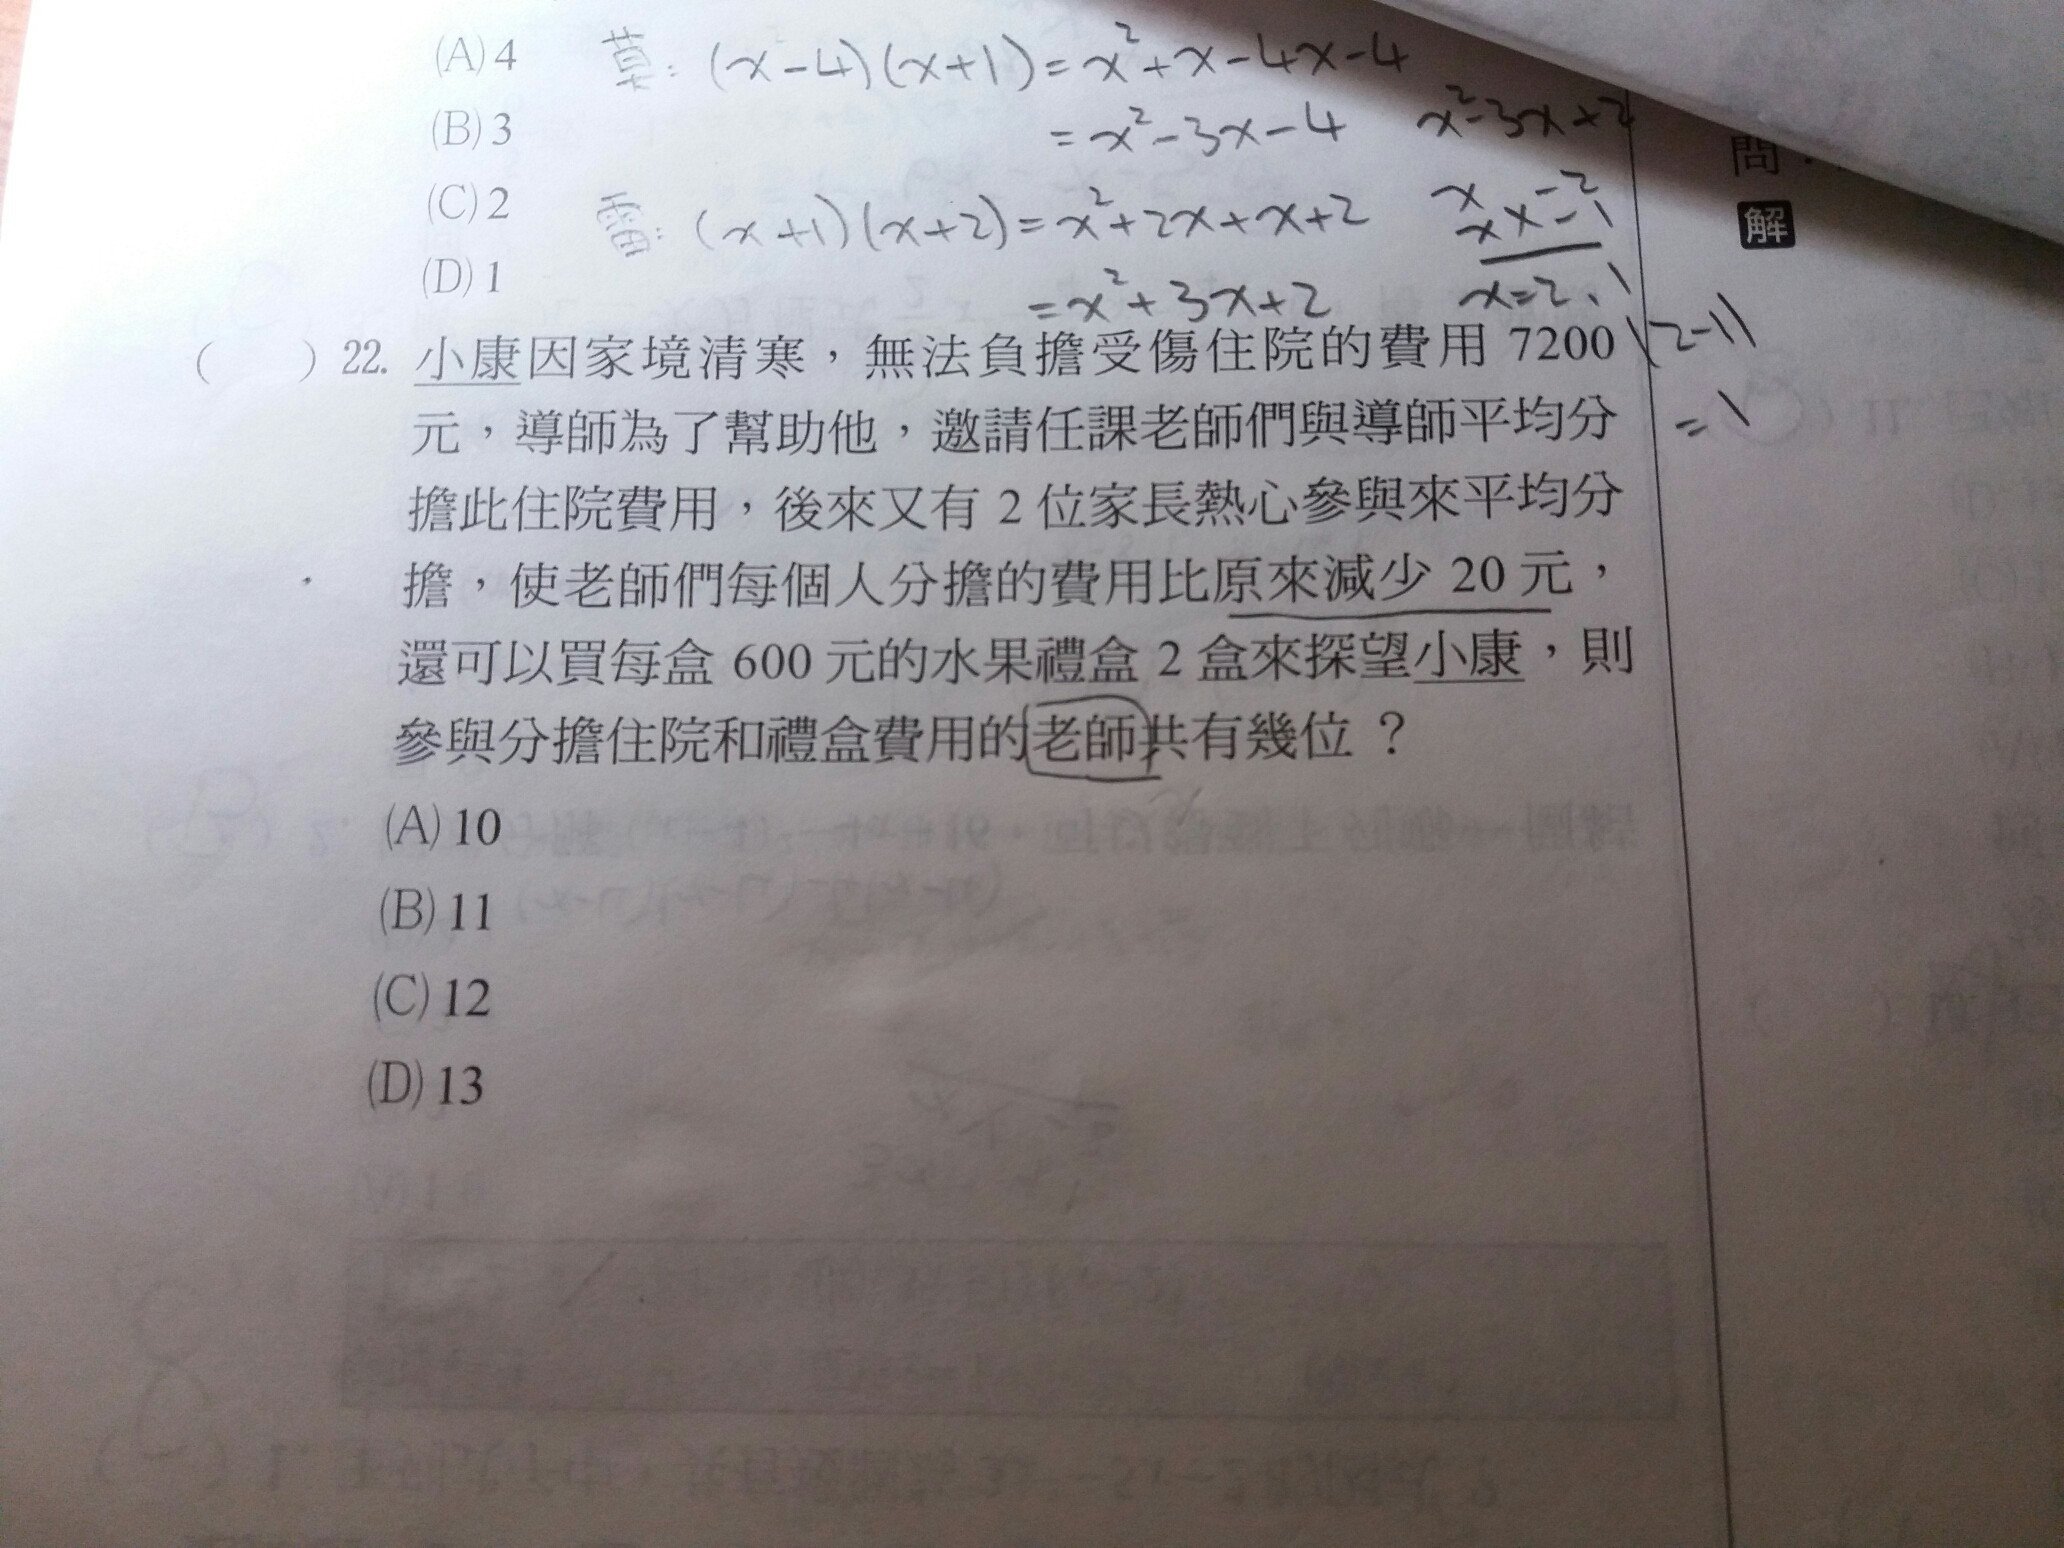 (A) 4 莫: (x-4)(x+1)=x²+x-4x-4
(B) 3 =x²-3x-4 x²-3x+2
(C) 2 雷: (x+1)(x+2)=x²+2x+x+2 x -2
x x -1
(D) 1 =x²+3x+2 x=2、1
問：
解
( ) 22. 小康因家境清寒，無法負擔受傷住院的費用 7200 |2-1|
元，導師為了幫助他，邀請任課老師們與導師平均分 =1
擔此住院費用，後來又有 2 位家長熱心參與來平均分
擔，使老師們每個人分擔的費用比原來減少 20 元，
還可以買每盒 600 元的水果禮盒 2 盒來探望小康，則
參與分擔住院和禮盒費用的老師共有幾位？
(A) 10
(B) 11
(C) 12
(D) 13